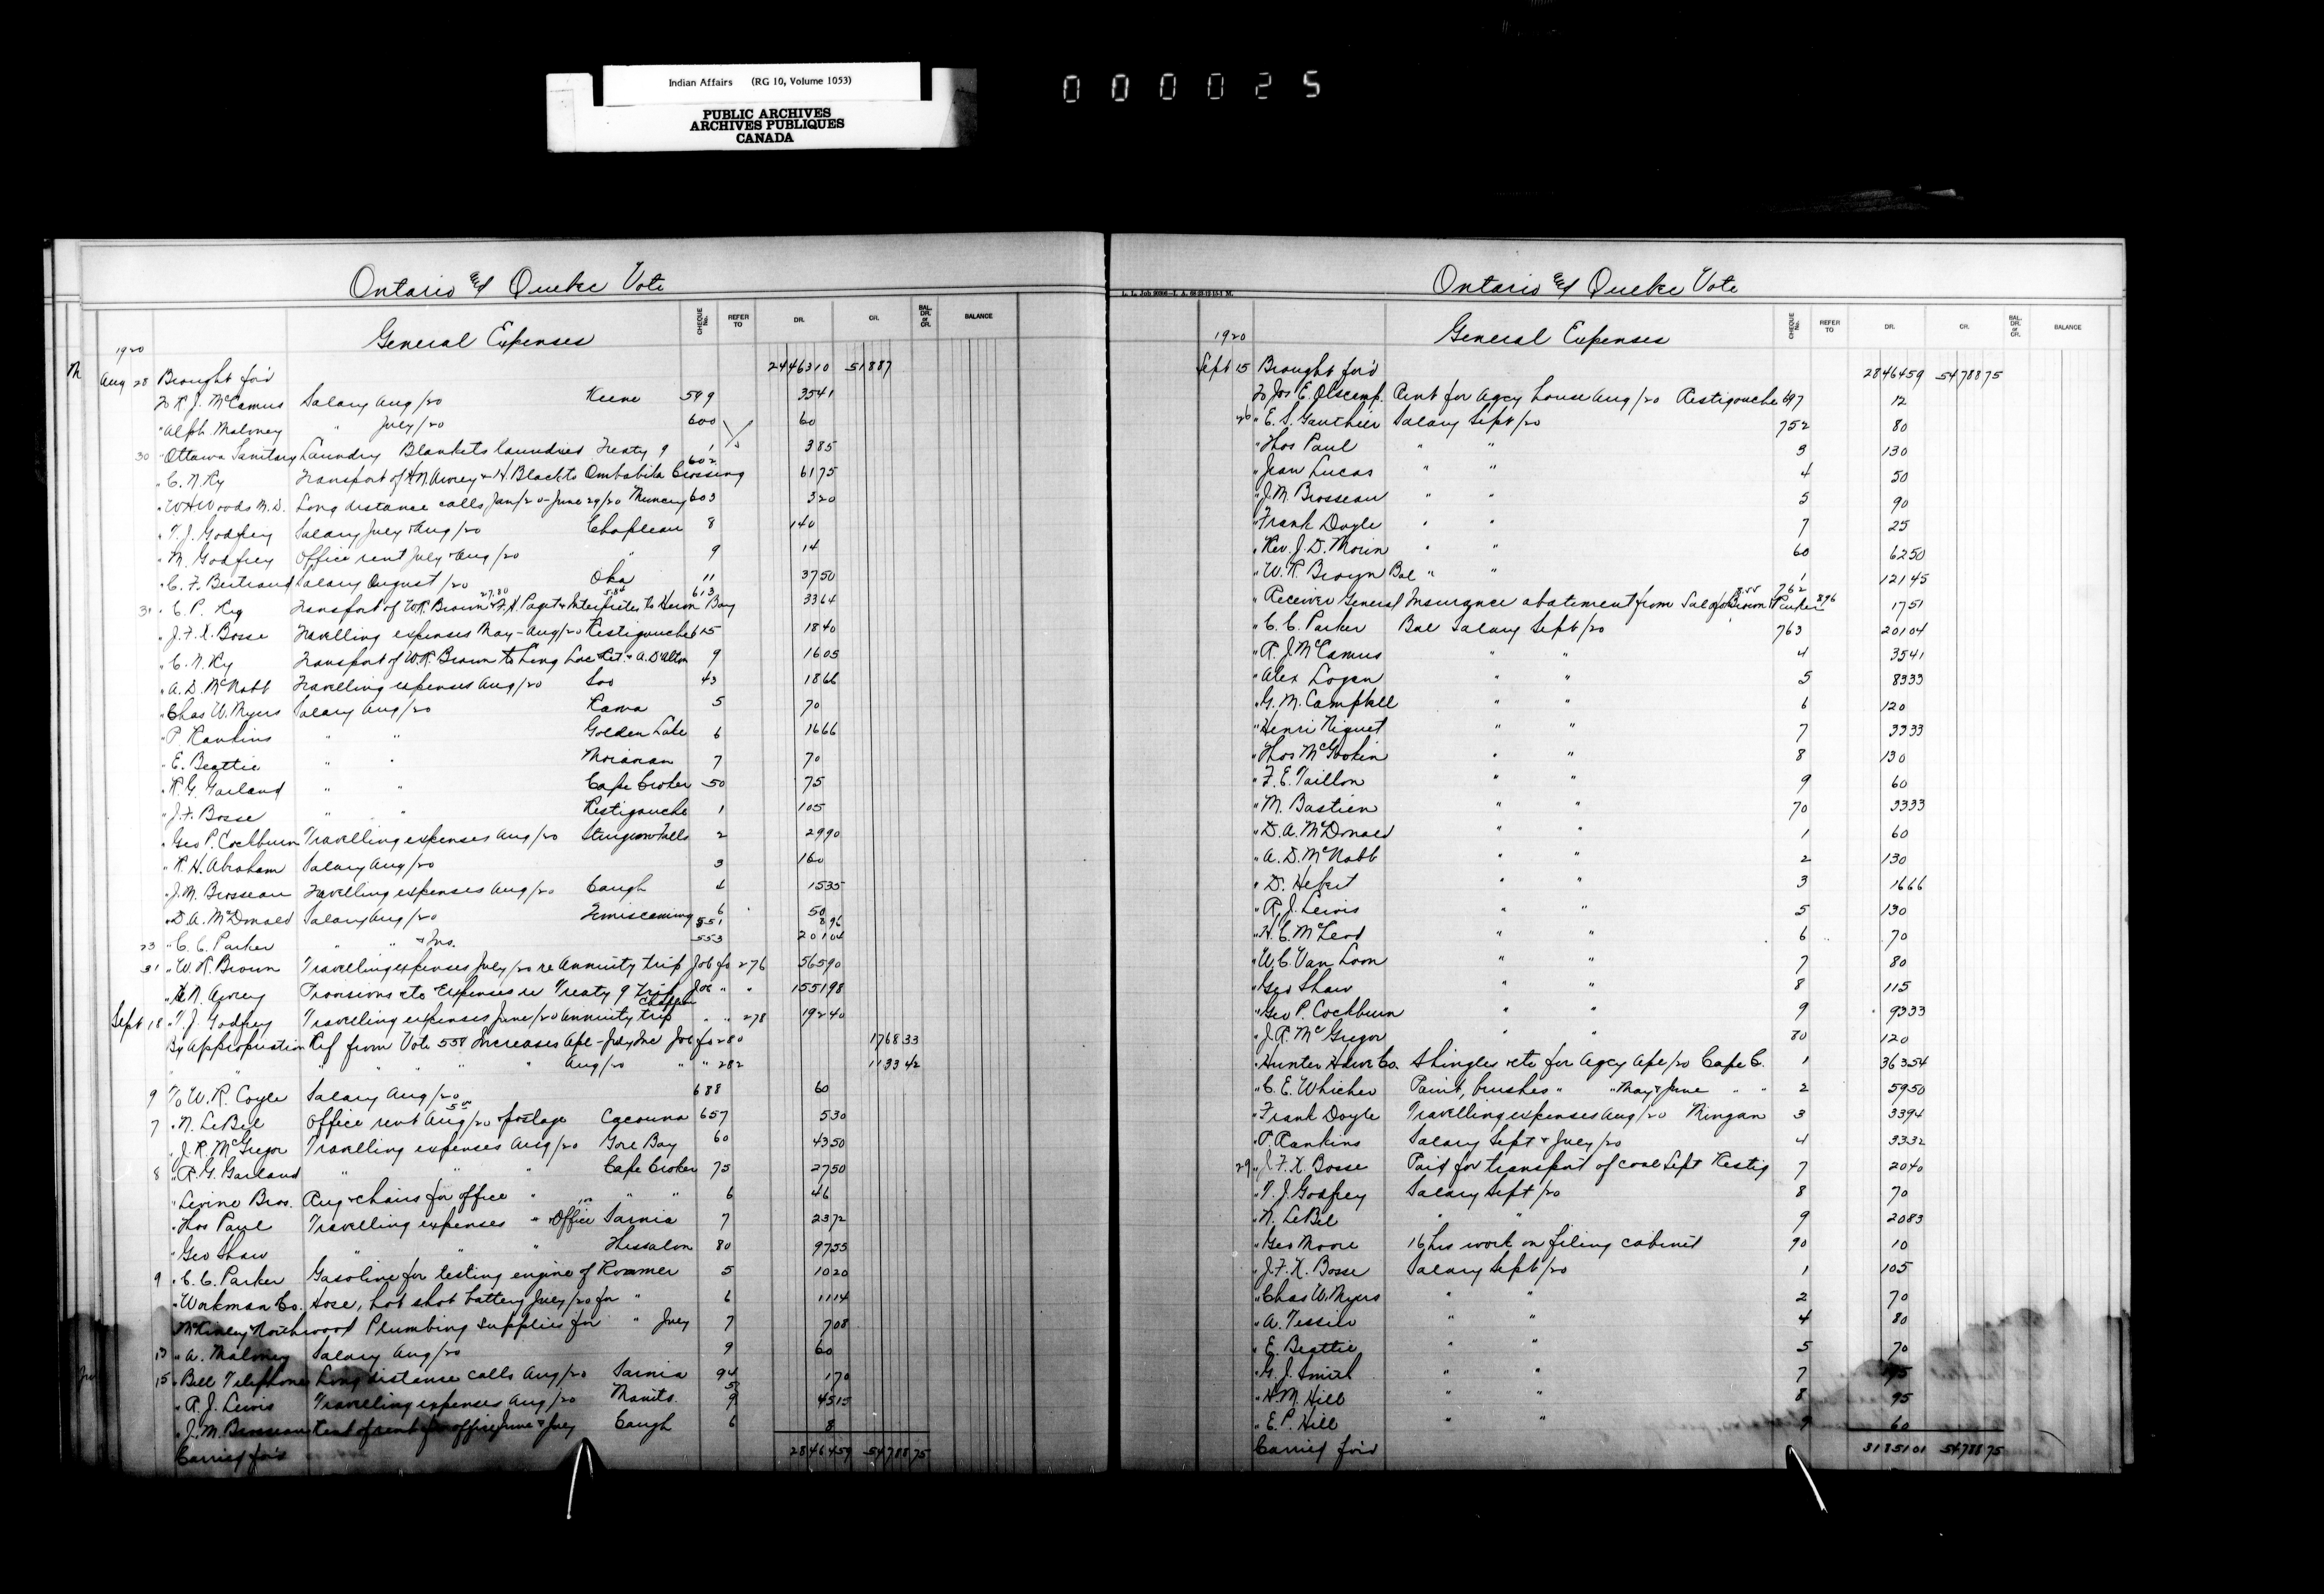 Indian Affairs (RG 10, Volume 1053)
PUBLIC ARCHIVES
ARCHIVES PUBLIQUES
CANADA
000025
Ontario & Quebec Vote
General Expenses
CHEQUE No. REFER TO DR. CR. BAL. DR. or CR. BALANCE
1920
Aug 28 Brought for'd 24463 10 518 87
To R. J. McCamus Salary Aug/20 Keene 599 35 41
" Alph. Maloney " July/20 600 60
30 " Ottawa Sanitary Laundry Blankets laundried Treaty 9 1 3 85
" C. N. Ry Transport of H N Awrey & H. Black to Ombabika Crossing 602 61 75
" W H Woods M.D. Long distance calls Jan/20-June 29/20 Muncey 603 3 20
" T. J. Godfrey Salary July & Aug/20 Chapleau 8 140
" M. Godfrey Office rent July & Aug/20 " 9 14
" C. F. Bertrand Salary August/20 Oka 11 37 50
31 " C. P. Ry Transport of W.R. Brown 27.80 & F. X. Paget & Interpreter 5.84 to Heron Bay 613 33 64
" J. F. X. Bosse Travelling expenses May-Aug/20 Restigouche 615 18 40
" C. N. Ry Transport of W.R. Brown to Long Lac Ret. & A. D'Alton 9 16 05
" A. D. McNabb Travelling expenses Aug/20 Soo 43 18 66
" Chas W. Myers Salary Aug/20 Rama 5 70
" P. Rankins " " Golden Lake 6 16 66
" E. Beattie " " Moravian 7 70
" R. G. Garland " " Cape Croker 50 75
" J. F. Bosse " " Restigouche 1 105
" Geo P. Cockburn Travelling expenses Aug/20 Sturgeon Falls 2 29 90
" R. H. Abraham Salary Aug/20 3 160
" J. M. Brosseau Travelling expenses Aug/20 Caugh 4 15 35
" D. A. McDonald Salary Aug/20 Temiscaming 6 50
551 8 96
23 " C. C. Parker " " & Ins. 553 201 04
31 " W. R. Brown Travelling expenses July/20 re Annuity trip Job fo 276 565 90
" H N. Awrey Provisions etc Expenses re Treaty 9 Trip Job " " 1551 98
Sept 18 " T. J. Godfrey Travelling expenses June/20 Annuity trip Chapleau " " 278 192 40
By Appropriation Ref from Vote 558 Increases Apl-July Inc Job fo 280 1768 33
" " " " " " Aug/20 " " 282 1133 42
9 To W. R. Coyle Salary Aug/20 688 60
7 " N. LeBel Office rent Aug/20 5.00 & postage Cacouna 657 5 30
" J. R. McGregor Travelling expenses Aug/20 Gore Bay 60 43 50
8 " R. G. Garland " " " Cape Croker 75 27 50
" Levine Bros. Rug & chairs for office " " " 6 46
" Thos Paul Travelling expenses " Office Sarnia 7 23 72
" Geo Shaw " " " Thessalon 80 97 55
9 " C. C. Parker Gasoline for testing engine of Roamer 5 10 20
" Workman Co. Hose, hot shot battery July/20 for " 6 11 14
McKinley & Northwood Plumbing supplies for " July 7 7 08
13 " A. Maloney Salary Aug/20 9 60
15 " Bell Telephone Long distance calls Aug/20 Sarnia 94 1 70
" R. J. Lewis Travelling expenses Aug/20 Manito. 9 45 15
" J. M. Brosseau Rent for office June & July Caugh 6 8
Carried for'd 28464 59 54788 75
Ontario & Quebec Vote
General Expenses
CHEQUE No. REFER TO DR. CR. BAL. DR. or CR. BALANCE
1920
Sept 15 Brought for'd 28464 59 54788 75
To Jos E. Olscamp. Rent for Agcy house Aug/20 Restigouche 697 12
26 " E. S. Gauthier Salary Sept/20 752 80
" Thos Paul " " 3 130
" Jean Lucas " " 4 50
" J. M. Brosseau " " 5 90
" Frank Doyle " " 7 25
" Rev. J. D. Morin " " 60 62 50
" W. R. Brown Bal " " 1 121 45
" Receiver General Insurance abatement from Sal of Brown 8.55 & Parker 8.96 762 17 51
" C. C. Parker Bal Salary Sept/20 763 201 04
" R. J. McCamus " " 4 35 41
" Alex Logan " " 5 83 33
" G. M. Campbell " " 6 120
" Henri Niquet " " 7 33 33
" Thos McGookin " " 8 130
" F. E. Taillon " " 9 60
" M. Bastien " " 70 33 33
" D. A. McDonald " " 1 60
" A. D. McNabb " " 2 130
" D. Hebert " " 3 16 66
" R. J. Lewis " " 5 130
" H. C. McLeod " " 6 70
" W. C. Van Loon " " 7 80
" Geo Shaw " " 8 115
" Geo P. Cockburn " " 9 93 33
" J. R. McGregor " " 80 120
" Hunter Hdwe Co. Shingles etc for Agcy Apl/20 Cape C. 1 363 54
" C. E. Whicher Paint, brushes " " May & June " " 2 59 50
" Frank Doyle Travelling expenses Aug/20 Mingan 3 33 94
" P. Rankins Salary Sept & July/20 4 33 32
29 " J. F. X. Bosse Paid for transport of coal Sept Restig 7 20 40
" T. J. Godfrey Salary Sept/20 8 70
" N. LeBel " " 9 20 83
" Geo Moore 16 hrs work on filing cabinet 90 10
" J. F. X. Bosse Salary Sept/20 1 105
" Chas W. Myers " " 2 70
" A. Tessier " " 4 80
" E. Beattie " " 5 70
" G. J. Smith " " 7 95
" H. M. Hill " " 8 95
" E. P. Hill " " 9 60
Carried for'd 31851 01 54788 75